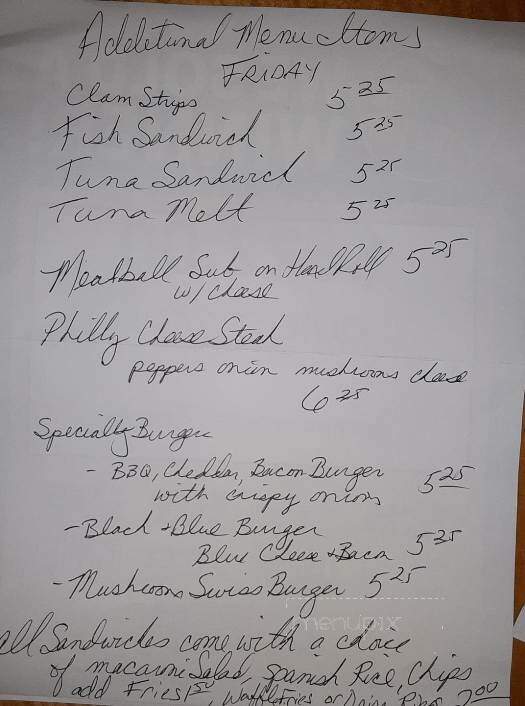 Additional Menu Items
FRIDAY
Clam Strips 5 25
Fish Sandwich 5 25
Tuna Sandwich 5 25
Tuna Melt 5 25
Meatball Sub on Hard Roll 5 25
w/ cheese
Philly Cheese Steak
peppers onion mushrooms cheese
6 25
Specialty Burger
- BBQ, Cheddar, Bacon Burger 5 25
with crispy onions
- Black + Blue Burger
Blue Cheese + Bacon 5 25
- Mushroom Swiss Burger 5 25
menupix
all Sandwiches come with a choice
of macaroni Salad, Spanish Rice, Chips
add Fries 1 50, Waffle Fries or Onion Rings 2 00